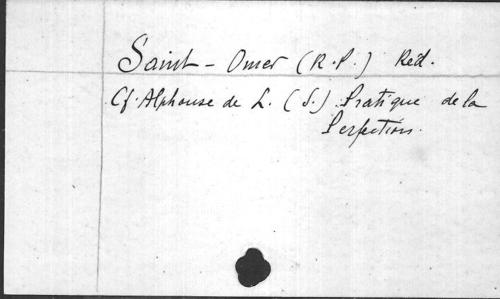 Saint-Omer (R.P.) Réd.
Cf. Alphonse de L. (S.) Pratique de la
Perfection.